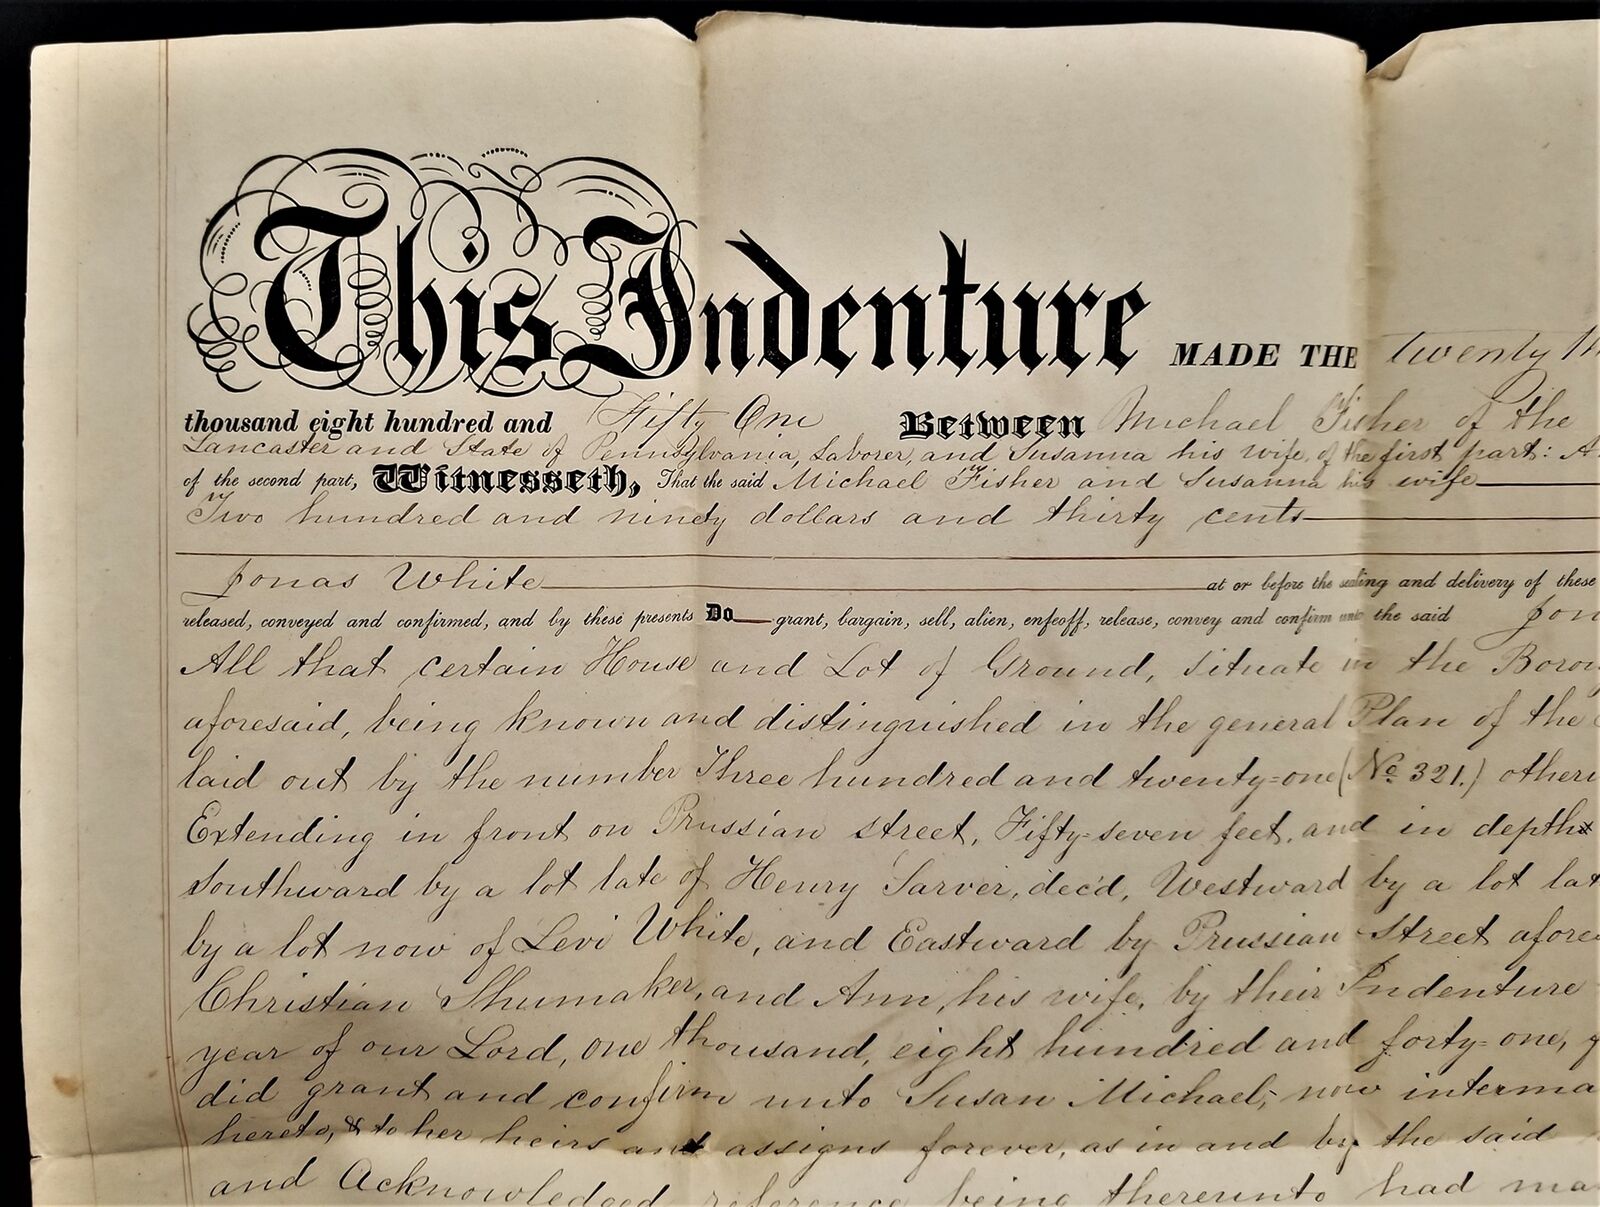 This Indenture MADE THE twenty
thousand eight hundred and Fifty One Between Michael Fisher of the
Lancaster and State of Pennsylvania, Laborer, and Susanna his wife, of the first part:
of the second part, Witnesseth, That the said Michael Fisher and Susanna his wife
Two hundred and ninety dollars and thirty cents
Jonas White at or before the sealing and delivery of these
released, conveyed and confirmed, and by these presents Do grant, bargain, sell, alien, enfeoff, release, convey and confirm unto the said Jon
All that certain House and Lot of Ground, situate in the Borou
aforesaid, being known and distinguished in the general Plan of the
laid out by the number Three hundred and twenty=one (No. 321.) otherw
Extending in front on Prussian street, Fifty=seven feet, and in depth
Southward by a lot late of Henry Sarver, dec'd, Westward by a lot lat
by a lot now of Levi White, and Eastward by Prussian Street afore
Christian Shumaker, and Ann, his wife, by their Indenture
year of our Lord, one thousand, eight hundred and forty=one,
did grant and confirm unto Susan Michael, now interma
hereto, & to her heirs and assigns forever, as in and by the said
and Acknowledged reference being thereunto had